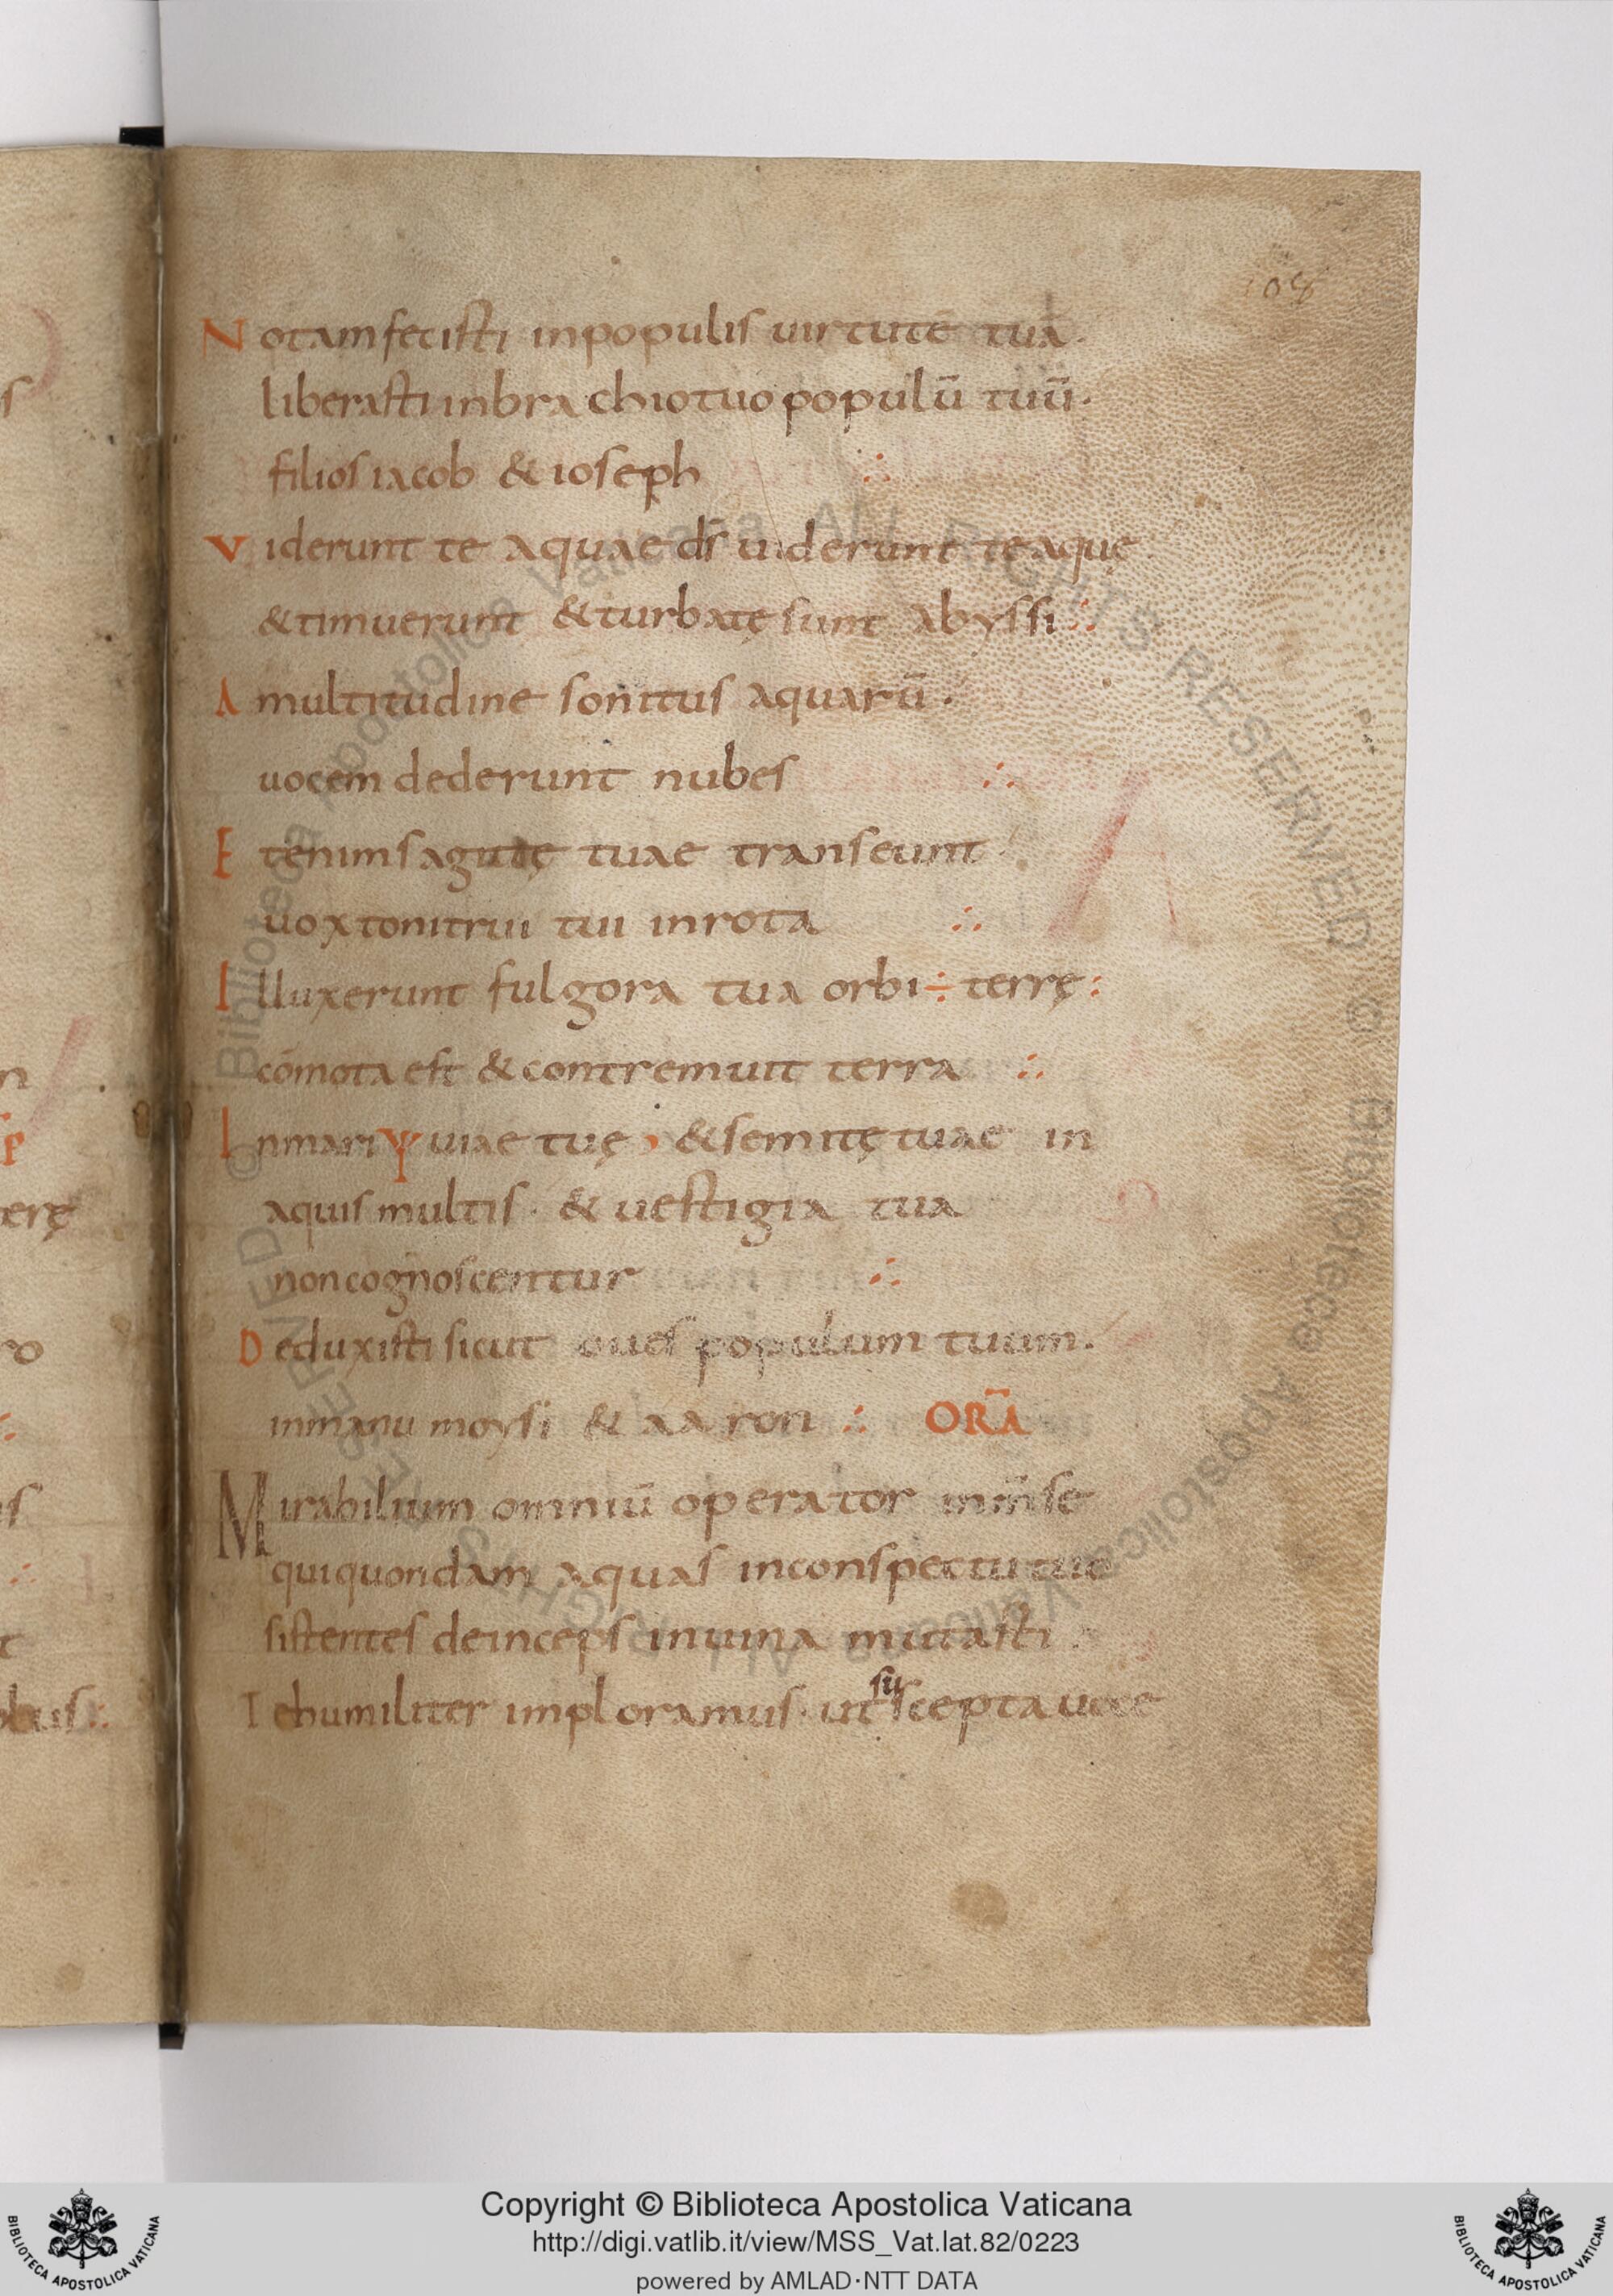 108
Notam fecisti in populis uirtutē tuā.
liberasti in brachio tuo populū tuū.
filios iacob & ioseph ∴
Viderunt te aquae d̄s uiderunt te aquę
& timuerunt & turbatę sunt abyssi ∴
A multitudine sonitus aquarū.
uocem dederunt nubes ∴
Etenim sagittę tuae transeunt
uox tonitrui tui in rota ∴
Illuxerunt fulgora tua orbi ÷ terrę :
cōmota est & contremuit terra ∴
In mari ψ uiae tuę , & semitę tuae in
aquis multis . & uestigia tua
non cognoscentur ∴
Deduxisti sicut oues populum tuum.
in manu moysi & aaron ∴ ORĀ
Mirabilium omniū operator
qui quondam aquas in conspectu tuo
sistentes deinceps in uina mutasti .
Te humiliter imploramus . ut suscepta uoce
© Biblioteca Apostolica Vaticana ALL RIGHTS RESERVED © Biblioteca Apostolica Vaticana ALL RIGHTS RESERVED
Copyright © Biblioteca Apostolica Vaticana
http://digi.vatlib.it/view/MSS_Vat.lat.82/0223
powered by AMLAD·NTT DATA
BIBLIOTECA APOSTOLICA VATICANA
BIBLIOTECA APOSTOLICA VATICANA